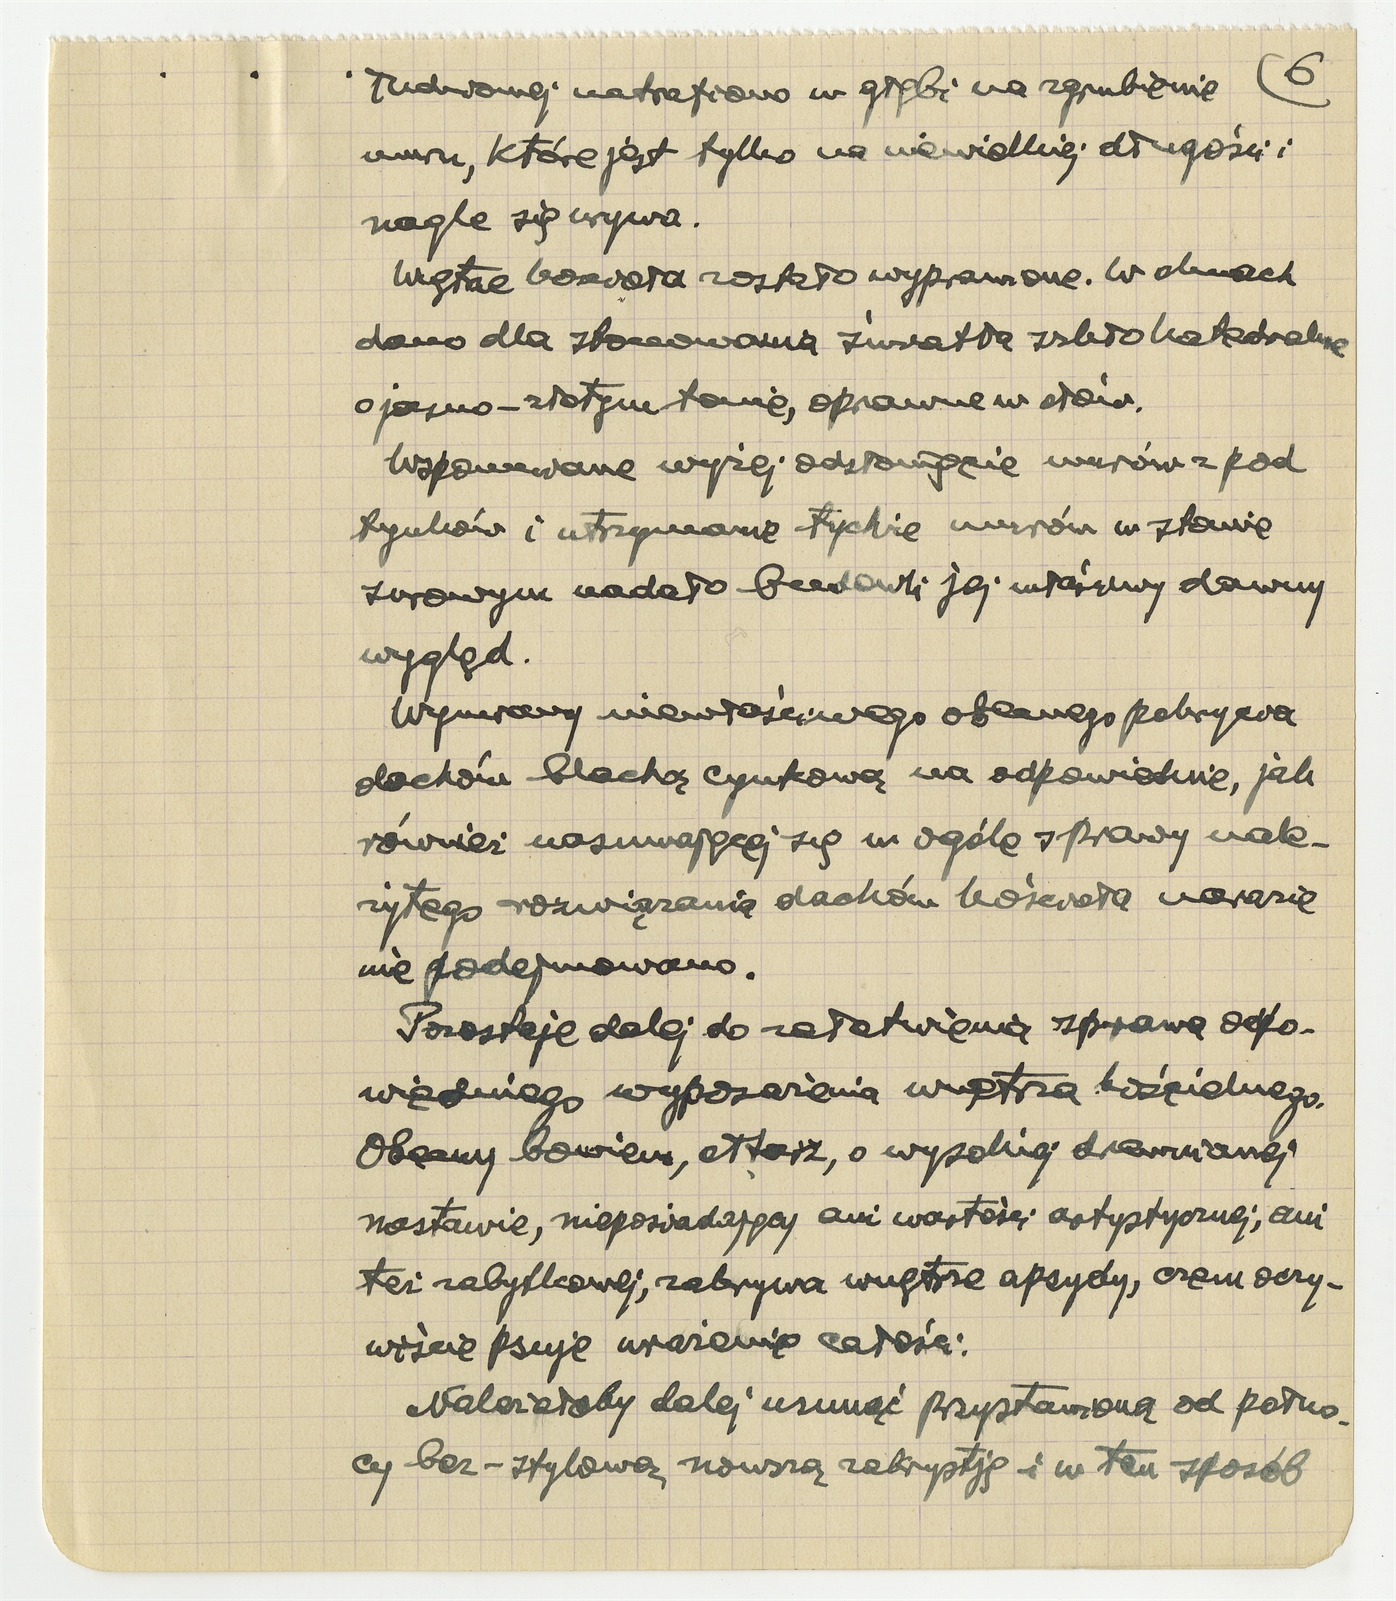 6
łudniowej natrafiono w głębi na zgrubienie
muru, które jest tylko na niewielkiej długości i
nagle się urywa.
Wnętrze kościoła zostało wyprawione. W oknach
dano dla stonowania światła szkło katedralne
o jasno-złotym tonie, oprawne w ołów.
Wspomniane wyżej odsłonięcie murów z pod
tynków i utrzymanie tychże murów w stanie
surowym nadało budowli jej właściwy dawny
wygląd.
Wymiany niewłaściwego obecnego pokrycia
dachów blachą cynkową na odpowiednie, jak
również nasuwającej się w ogóle sprawy nale-
żytego rozwiązania dachów kościoła narazie
nie podejmowano.
Pozostaje dalej do załatwienia sprawa odpo-
wiedniego wyposażenia wnętrza kościelnego.
Obecny bowiem, ołtarz, o wysokiej drewnianej
nastawie, nieposiadającej ani wartości artystycznej, ani
też zabytkowej, zakrywa wnętrze apsydy, czem oczy-
wiście psuje wrażenie całości.
Należałoby dalej usunąć przystawioną od półno-
cy bez-stylową nowszą zakrystję i w ten sposób